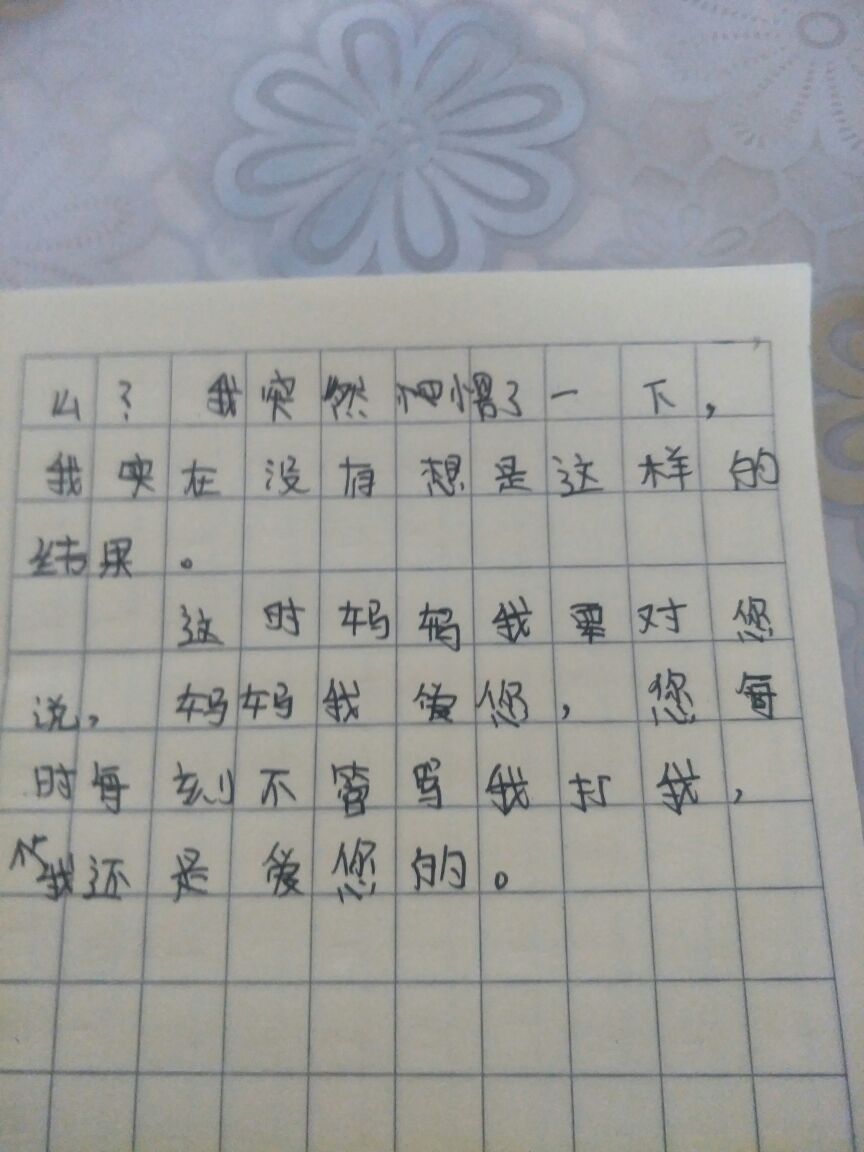 么？我突然恍惚了一下，
我实在没有想是这样的
结果。
这时妈妈我要对您
说，妈妈我爱您，您每
时每刻不管骂我打我，
我还是爱您的。